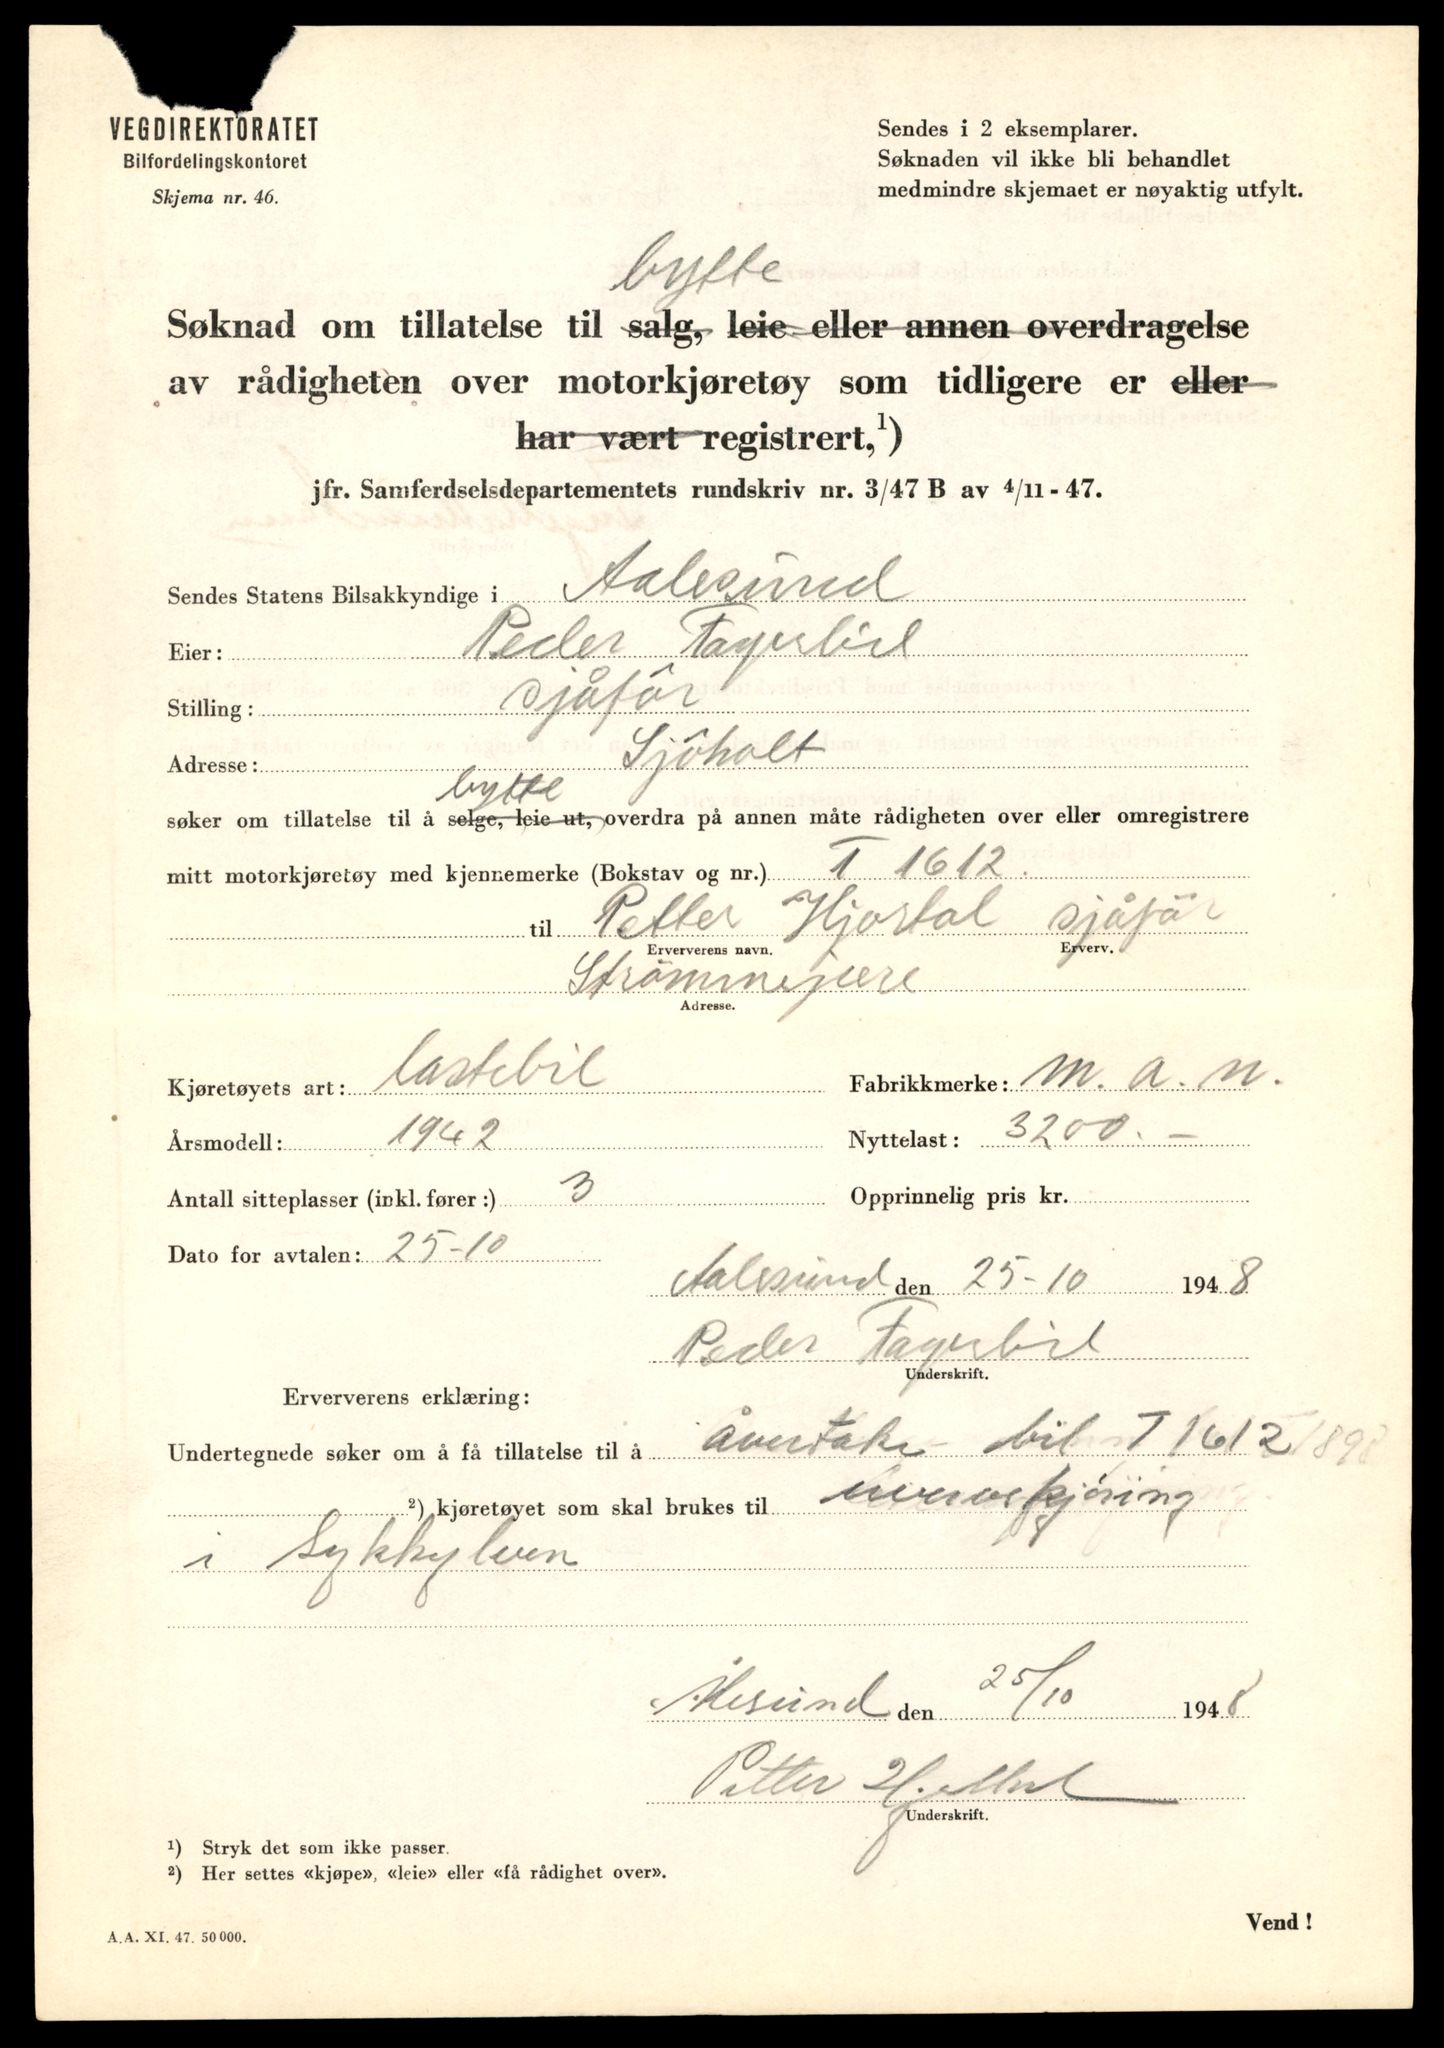 VEGDIREKTORATET
Bilfordelingskontoret
Skjema nr. 46.
Sendes i 2 eksemplarer.
Søknaden vil ikke bli behandlet
medmindre skjemaet er nøyaktig utfylt.
bytte
Søknad om tillatelse til salg, leie eller annen overdragelse
av rådigheten over motorkjøretøy som tidligere er eller
har vært registrert,¹)
jfr. Samferdselsdepartementets rundskriv nr. 3/47 B av 4/11-47.
Sendes Statens Bilsakkyndige i Aalesund
Eier: Peder Fagerlid
Stilling: sjåfør
Adresse: Sjøholt
bytte
søker om tillatelse til å selge, leie ut, overdra på annen måte rådigheten over eller omregistrere
mitt motorkjøretøy med kjennemerke (Bokstav og nr.) T 1612.
til Petter Hjortal sjåfør
Erververens navn. Erverv.
Strømmegjære
Adresse.
Kjøretøyets art: lastebil Fabrikkmerke: M. a. n.
Årsmodell: 1942 Nyttelast: 3200.-
Antall sitteplasser (inkl. fører:) 3 Opprinnelig pris kr.
Dato for avtalen: 25-10
Aalesund den 25-10 1948
Peder Fagerlid
Underskrift.
Erververens erklæring:
Undertegnede søker om å få tillatelse til å åvertake bil T 1612
²) kjøretøyet som skal brukes til kjøring
i Sykkylven
Ålesund den 25/10 1948
Petter
Underskrift.
¹) Stryk det som ikke passer.
²) Her settes «kjøpe», «leie» eller «få rådighet over».
Vend!
A.A. XI. 47. 50 000.